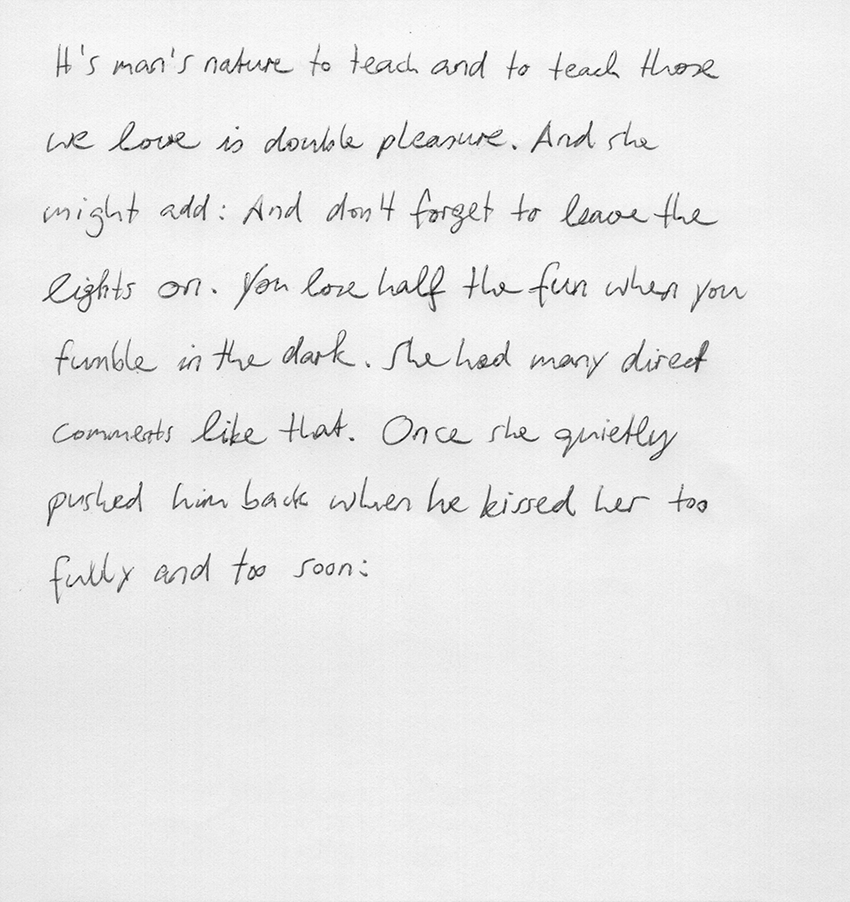 It's man's nature to teach and to teach those
we love is double pleasure. And she
might add: And don't forget to leave the
lights on. You lose half the fun when you
fumble in the dark. She had many direct
comments like that. Once she quietly
pushed him back when he kissed her too
fully and too soon: